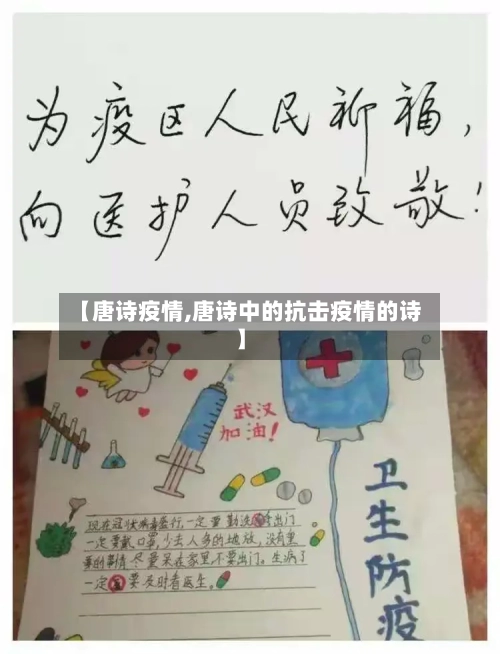 为疫区人民祈福，
向医护人员致敬！
【唐诗疫情,唐诗中的抗击疫情的诗
】
武汉
加油！
卫生防疫
现在冠状病毒盛行,一定要勤洗手出门
一定要戴口罩,少去人多的地放,没有重
要的事情尽量呆在家里,不要出门。生病了
一定要及时看医生。